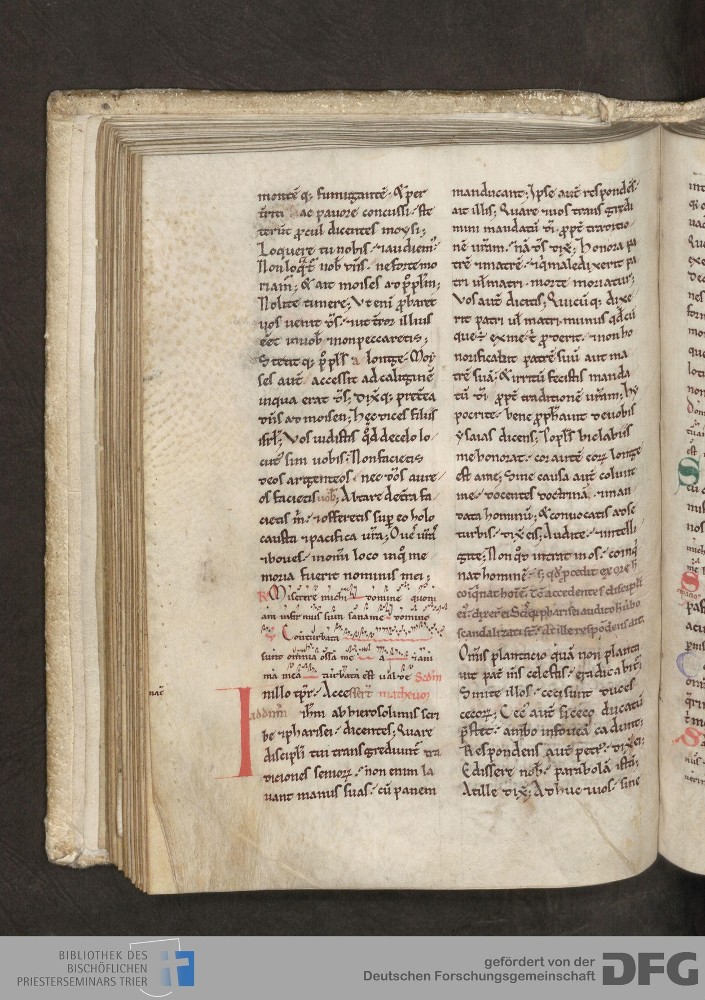 montē q; fumigantē. & per
territi ac pauore concussi. ste
terūt ꝓcul dicentes moysi;
Loquere tu nobis. & audiem;
Non loqat̄ nob dn̄s. ne forte mo
riam; & ait moises ad pplm;
Nolite timere; Ut enī ꝓbaret
uos uenit ds̄. & ut t̄ror illius
eēt in uob & non peccaretis;
Stetit q; ppl̄s a longe. Moy
ses aut̄ accessit ad caliginē
in qua erat ds̄; Dix̄ q; pret̄ea
dn̄s ad moisen; Hec dices filiis
isrl; Uos uidistis qd̄ de celo lo
cut sim uobis; Non facietis
deos argenteos. nec dōs aure
os facietis uob; Altare de t̄ra fa
cietis m. & offeretis sup eo holo
causta & pacifica ur̄a; Oues ur̄as
& boues. in om̄i loco in q̄ me
moria fuerit nominis mei;
R Miserere michi domine quoni
am infirmus sum sana me domine
Conturbata
sunt omnia ossa me a & ani
ma mea turbata est ualde Scdm
In illo tpr. Accesserūt matheum
ad dnm ihm ab hierosolimis scri
be & pharisei. dicentes; Quare
discipli tui transgrediunt tra
diciones seniorꝝ. non enim la
uant manus suas. cū panem
manducant; Ipse aut̄ respondēs.
ait illis; Quare & uos transgredi
mini mandatū dī. ꝓpt̄ traditio
nē ur̄am. nā ds̄ dix̄; Honora pa
trē & matrē. & q̄ maledixerit pa
tri ul matri. morte moriatur;
Uos aut̄ dicitis; Quicū q; dixe
rit patri ul matri. munus qd̄cū
que ē ex me. t ꝓderit. & non ho
norificabit patrē suū aut ma
trē suā. & irritū fecistis manda
tū dī. ꝓpt̄ traditionē ur̄am; Hy
pocrite. bene ꝓphauit de uobis
ysaias dicens; Popls̄ hic labiis
me honorat. cor aut̄ eorꝝ longe
est a me; Sine causa aut̄ colunt
me. docentes doctrinā. & man
data hominū; & conuocatis ad se
turbis. dix̄ eis; Audite. & intelli
gite; Non qd̄ intrat in os. coinq̄
nat hominē. sȝ qd̄ ꝓcedit ex ore h
coiq̄nat hoiē. Tē accedentes discipli
ei. dixer ei; Scis q̄ pharisei audito hͦ ubo
scandalizati st̄. At ille respondens ait.
Omīs plantacio quā non planta
uit pat̄ m̄s celestis. eradicabit;
Sinite illos. ceci sunt duces
cecorꝝ; Cec̄ aut̄ si ceco ducatū
p̄stet. ambo in foueā cadunt;
Respondens aut̄ petr. dix̄ ei;
Edissere nob. parabolā istā;
At ille dix̄; Adhuc & uos. sine
BIBLIOTHEK DES
BISCHÖFLICHEN
PRIESTERSEMINARS TRIER
gefördert von der
Deutschen Forschungsgemeinschaft
DFG